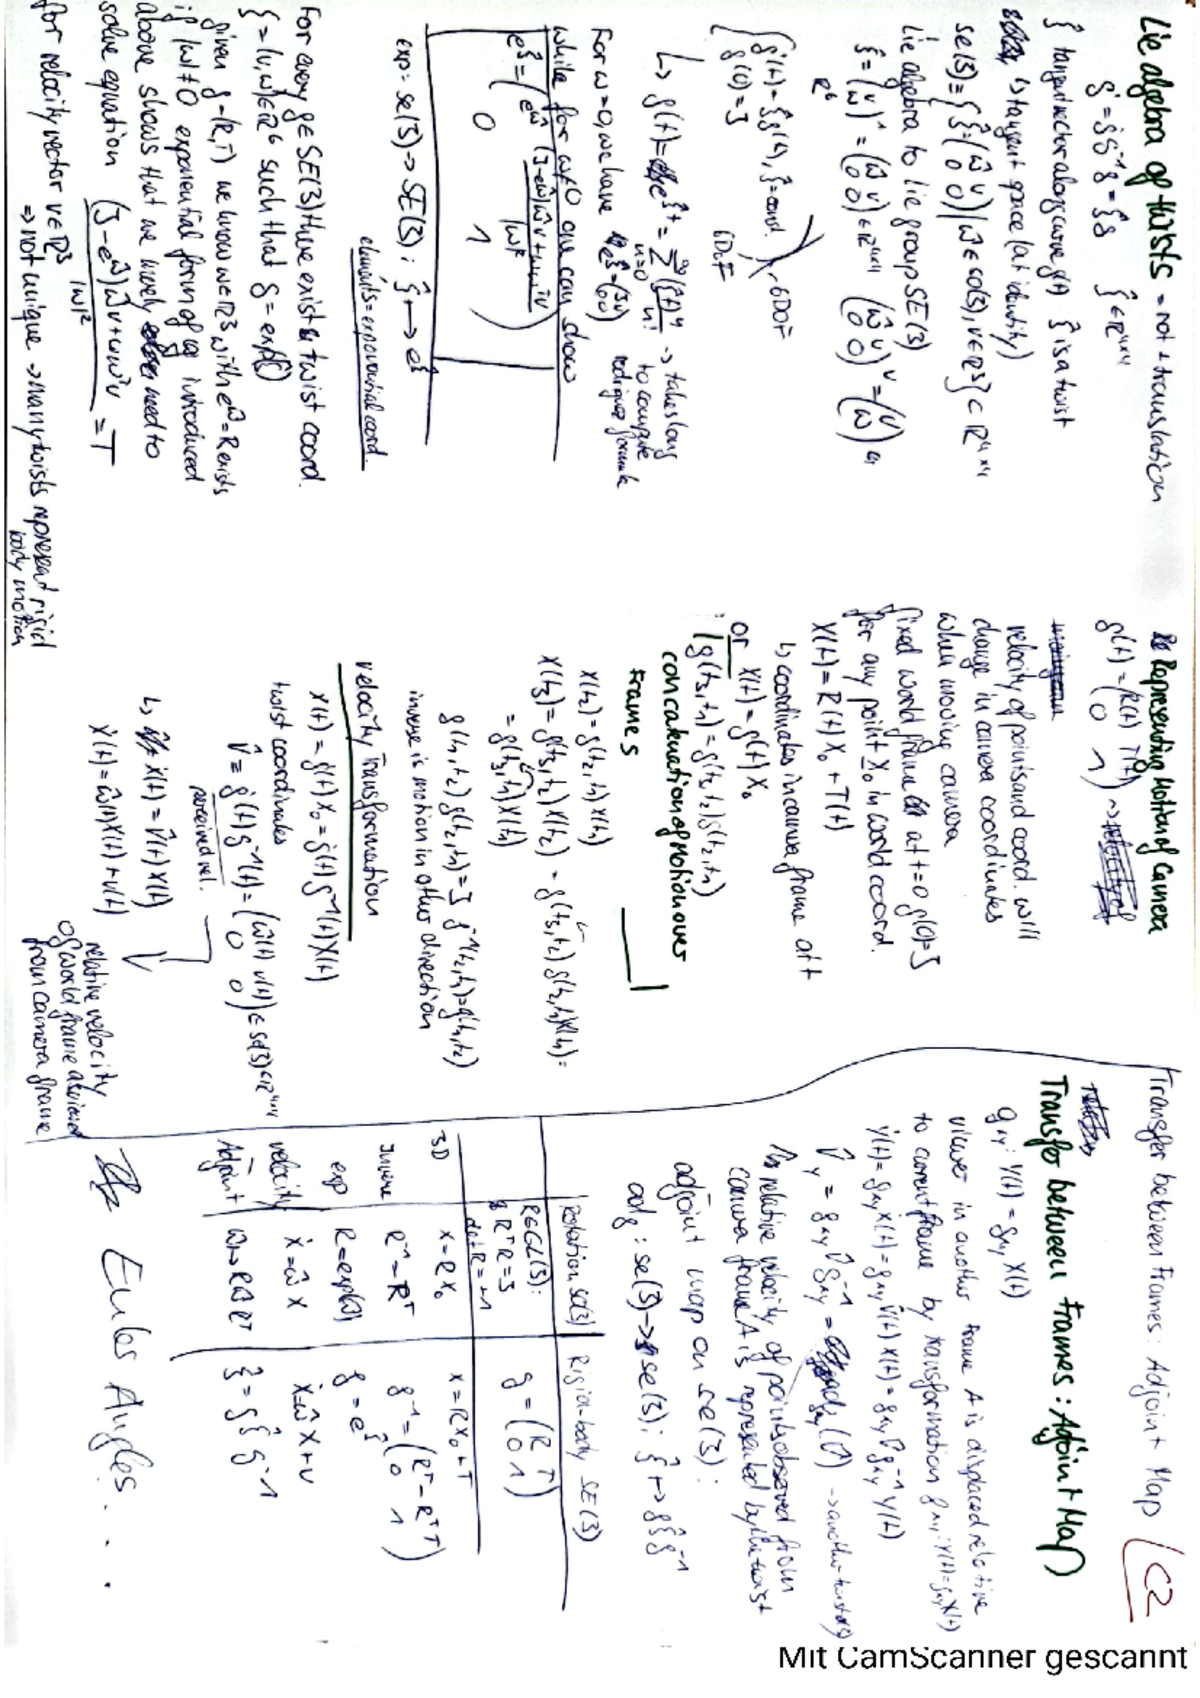 Lie algebra of twists = rot + translation
ġ = ġg⁻¹g = ξ̂g   ξ̂ ∈ R⁴ˣ⁴
ξ̂ tangent vector along curve g(t)   ξ̂ is a twist
↳ tangent space (at identity)
se(3) = { ξ̂ = (ŵ v; 0 0) | ŵ ∈ so(3), v ∈ R³ } ⊂ R⁴ˣ⁴
Lie algebra to Lie group SE(3)
ξ̂ = (v; w)^ = (ŵ v; 0 0) ∈ R⁴ˣ⁴   (ŵ v; 0 0)ᵛ = (v; w) ∈
R⁶
{ ġ(t) = ξ̂g(t), ξ̂ = const.   6DoF
g(0) = I   6DoF
↳ g(t) = e^ξ̂t = Σ (ξ̂t)ⁿ / n!   n=0   ∞   → takes long
to compute
rodrigues formula
For w = 0, we have e^ξ̂ = (I v; 0 1)
while for w ≠ 0 one can show
e^ξ̂ = ( e^ŵ   (I - e^ŵ)ŵv + wwᵀv / |w|² ; 0   1 )
exp: se(3) → SE(3); ξ̂ ↦ e^ξ̂
elements = exponential coord.
For every g ∈ SE(3) there exist twist coord.
ξ = (v, w) ∈ R⁶ such that g = exp(ξ̂)
given g = (R, T) we know w ∈ R³ with e^ŵ = R exists
if |w| ≠ 0 exponential form of g introduced
above shows that we merely need to
solve equation (I - e^ŵ)ŵv + wwᵀv / |w|² = T
for velocity vector v ∈ R³
⇒ not unique → many twists represent rigid
body motion
Representing Motion of Camera
g(t) = (R(t) T(t); 0 1)
velocity of points and coord. will
change in camera coordinates
when moving camera
fixed world frame at t = 0 g(0) = I
for any point X₀ in world coord.
X(t) = R(t)X₀ + T(t)
↳ coordinates in camera frame at t
or X(t) = g(t)X₀
g(t₃,t₁) = g(t₃,t₂)g(t₂,t₁)
concatenation of motion over
frames
X(t₂) = g(t₂,t₁)X(t₁)
X(t₃) = g(t₃,t₂)X(t₂) = g(t₃,t₂)g(t₂,t₁)X(t₁) =
= g(t₃,t₁)X(t₁)
g(t₁,t₂)g(t₂,t₁) = I   g⁻¹(t₂,t₁) = g(t₁,t₂)
inverse is motion in other direction
velocity Transformation
Ẋ(t) = ġ(t)X₀ = ġ(t)g⁻¹(t)X(t)
twist coordinates
V̂ = ġ(t)g⁻¹(t) = (ŵ(t) v(t); 0 0) ∈ se(3) ⊂ R⁴ˣ⁴
perceived vel.
↳ Ẋ(t) = V̂(t)X(t)
Ẋ(t) = ŵ(t)X(t) + v(t)
relative velocity
of world frame as viewed
from camera frame
Transfer between Frames: Adjoint Map
C2
Transfer between frames: Adjoint Map
gxy: Y(t) = gxy X(t)
viewer in another frame A is displaced relative
to current frame by transformation gxy: Y(t) = gxy X(t)
Ẏ(t) = gxy Ẋ(t) = gxy V̂(t) X(t) = gxy V̂ gxy⁻¹ Y(t)
V̂y = gxy V̂ gxy⁻¹ = ad gxy (V̂) → another twist
↳ relative velocity of points observed from
camera frame A is represented by the twist
adjoint map on se(3):
adg: se(3) → se(3); ξ̂ ↦ gξ̂g⁻¹
Rotation so(3) | Rigid-body SE(3)
R ∈ GL(3):
RᵀR = I
det R = +1   g = (R T; 0 1)
3D   X = RX₀   X = RX₀ + T
Inverse   R⁻¹ = Rᵀ   g⁻¹ = (Rᵀ -RᵀT; 0 1)
exp   R = exp(ŵ)   g = e^ξ̂
velocity   Ẋ = ŵX   Ẋ = ŵX + v
Adjoint   ŵ ↦ RŵRᵀ   ξ̂ = gξ̂g⁻¹
Euler Angles . . . .
Mit CamScanner gescannt